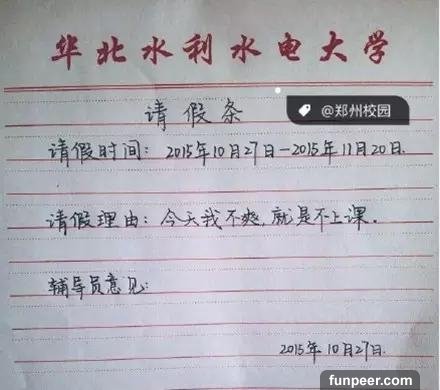 华北水利水电大学
@郑州校园
请假条
请假时间：2015年10月27日—2015年11月20日.
请假理由：今天我不爽，就是不上课.
辅导员意见：
2015年10月27日.
funpeer.com